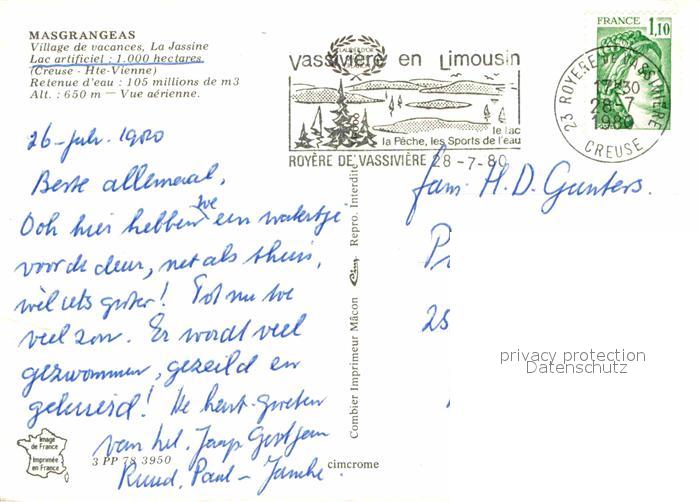 MASGRANGEAS
Village de vacances, La Jassine
Lac artificiel : 1.000 hectares
(Creuse - Hte-Vienne)
Retenue d'eau : 105 millions de m3
Alt. : 650 m — Vue aérienne.
Vassivière en Limousin
le lac
la Pêche, les Sports de l'eau
ROYÈRE DE VASSIVIÈRE 28 -7- 80
FRANCE 1,10
23 ROYERE DE VASSIVIERE
17H30
28-7
1980
CREUSE
26-July. 1980
Beste allemaal,
Ook hier hebben we een watertje
voor de deur, net als thuis,
wèl iets groter! Tot nu toe
veel zon. Er wordt veel
gezwommen, gezeild en
geluierd! De hart. groeten
van hel. Jaap Gertjan
Ruud, Paul - Janke
fam. H.D. Gunters.
P
25
Combier Imprimeur Mâcon Cim Repro. Interdite
privacy protection
Datenschutz
Image
de France
Imprimée
en France
3 PP 78 3950
cimcrome